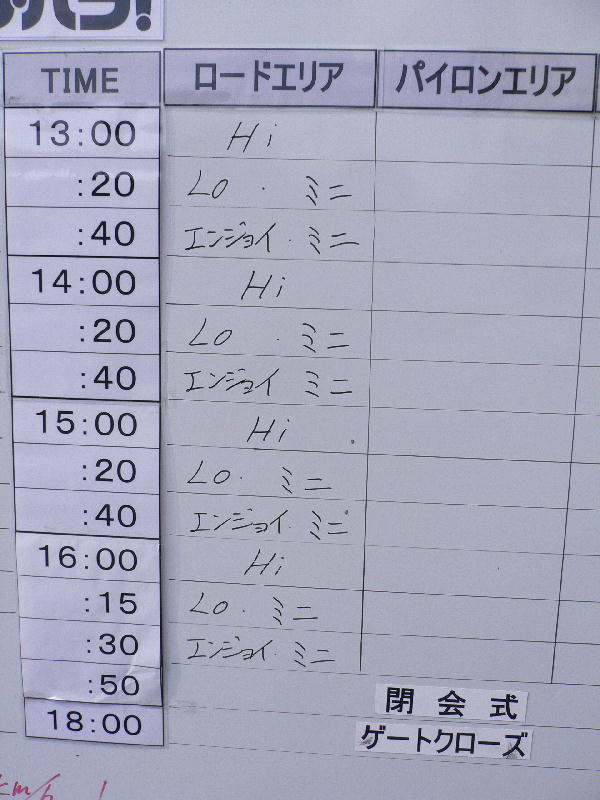 TIME ロードエリア パイロンエリア
13:00 Hi
:20 Lo · ミニ
:40 エンジョイ · ミニ
14:00 Hi
:20 Lo · ミニ
:40 エンジョイ ミニ
15:00 Hi
:20 Lo · ミニ
:40 エンジョイ · ミニ
16:00 Hi
:15 Lo · ミニ
:30 エンジョイ · ミニ
:50 閉会式
18:00 ゲートクローズ
km/h